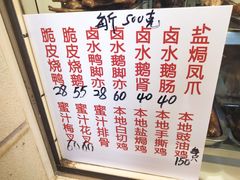 每斤 500克
脆皮烧鸭
28
脆皮烧鹅
55
卤水鸭脚亦
38
卤水鹅脚亦
60
卤水鹅肾
40
卤水鹅肠
40
盐焗凤爪
蜜汁梅叉
蜜汁花叉
蜜汁排骨
本地白切鸡
本地盐焗鸡
本地手撕鸡
本地豉油鸡
150